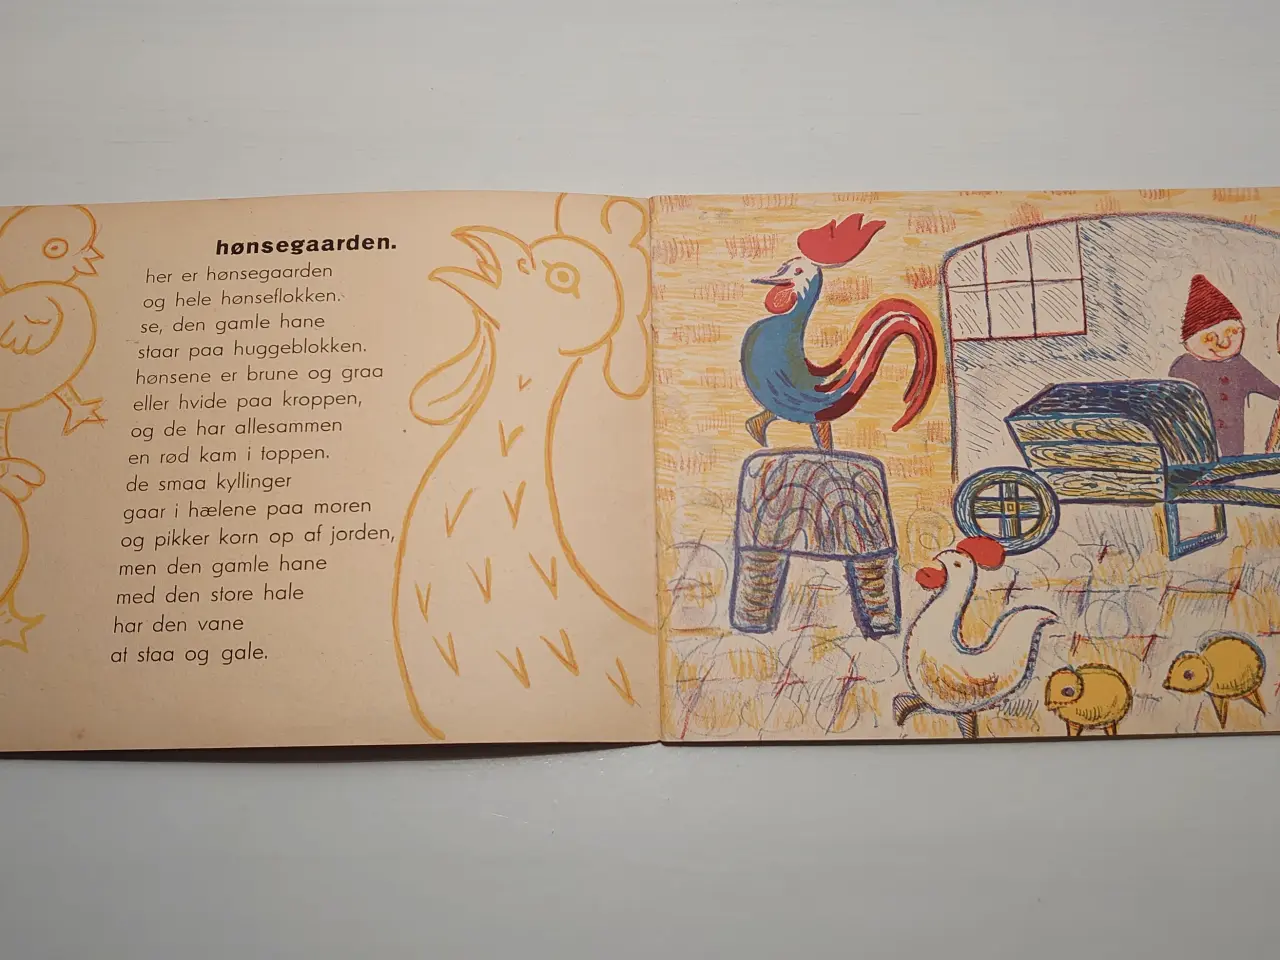 hønsegaarden.
her er hønsegaarden
og hele hønseflokken.
se, den gamle hane
staar paa huggeblokken.
hønsene er brune og graa
eller hvide paa kroppen,
og de har allesammen
en rød kam i toppen.
de smaa kyllinger
gaar i hælene paa moren
og pikker korn op af jorden,
men den gamle hane
med den store hale
har den vane
at staa og gale.